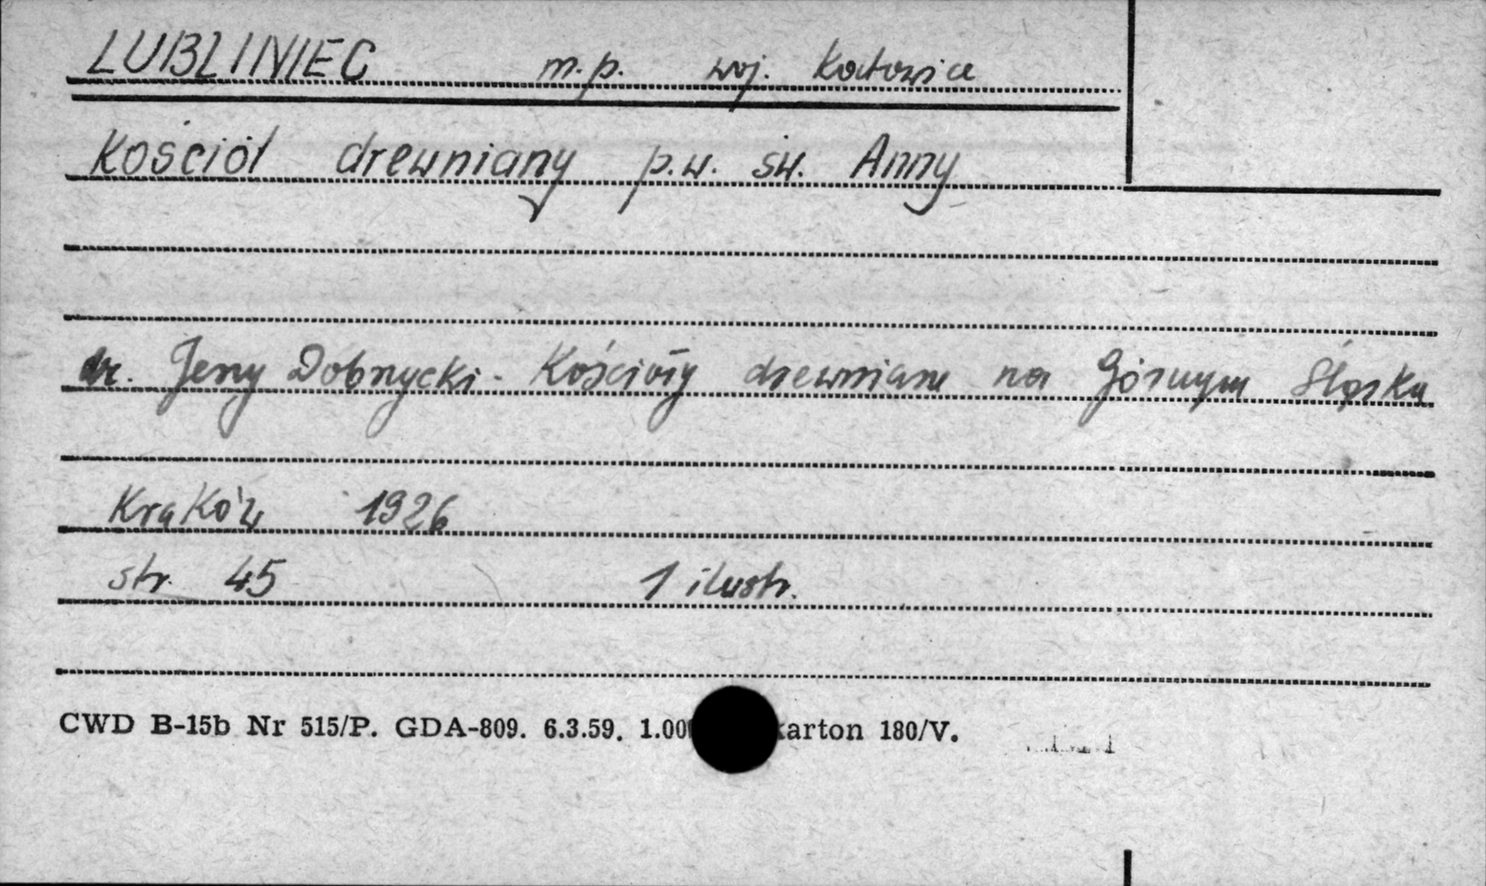 LUBLINIEC m.p. woj. Katowice
Kościół drewniany p.w. św. Anny
dr. Jerzy Dobrzycki - Kościoły drewniane na Górnym Śląsku
Kraków 1926
str. 45 1 ilustr.
CWD B-15b Nr 515/P. GDA-809. 6.3.59. 1.00 arton 180/V.